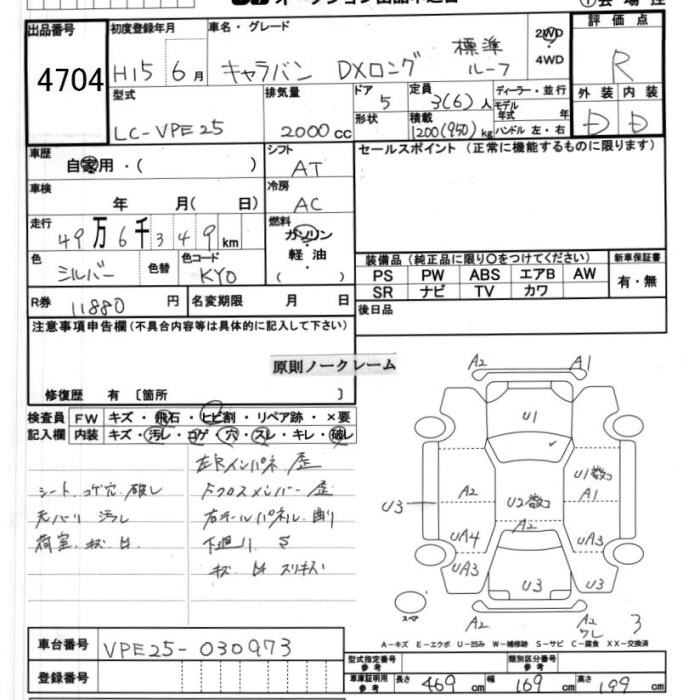 オークション出品申込書
出品番号
4704
初度登録年月
H15 6月
車名・グレード
キャラバン DXロング 標準ルーフ
2WD
4WD
評価点
R
型式
LC-VPE25
排気量
2000cc
ドア
5
形状
定員
3(6)人
積載
1200(950)kg
ディーラー・並行
モデル年式 年
ハンドル 左・右
外装 内装
D D
車歴
自家用・( )
シフト
AT
セールスポイント(正常に機能するものに限ります)
車検
年 月( 日)
冷房
AC
走行
49万6千349km
燃料
ガソリン
軽油
( )
色
シルバー
色替
色コード
KY0
装備品(純正品に限り○をつけてください)
新車保証書
PS PW ABS エアB AW
有・無
SR ナビ TV カワ
R券 11880円
名変期限 月 日
後日品
注意事項申告欄(不具合内容等は具体的に記入して下さい)
原則ノークレーム
修復歴 有〔箇所 〕
検査員 FW キズ・飛石・ヒビ割・リペア跡・×要
記入欄 内装 キズ・汚レ・コゲ・穴・スレ・キレ・破レ
左Rインパネ 歪
シート コゲ穴 破レ
Fクロスメンバー 歪
天バリ 汚レ
右テールパネル 削リ
荷室 キズ 凹
下廻リ S
キズ 凹 スリキズ
A2 A1
U1
U3
A2
U2数コ
A2
U1数コ
A1
UA4
UA3
UA3
U3
U3
スペア
A2
A2
ワレ
3
A-キズ E-エクボ U-凹み W-補修跡 S-サビ C-腐食 XX-交換済
車台番号 VPE25-030973
登録番号
型式指定番号 参考
類別区分番号 参考
車庫証明用 参考
長さ 469cm 幅 169cm 高さ 199cm